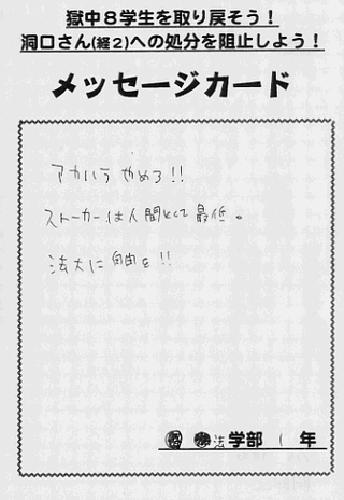 獄中8学生を取り戻そう！
洞口さん(経2)への処分を阻止しよう！
メッセージカード
アカハラやめろ!!
ストーカーは人間として最低。
法大に自由を!!
法学部 1 年